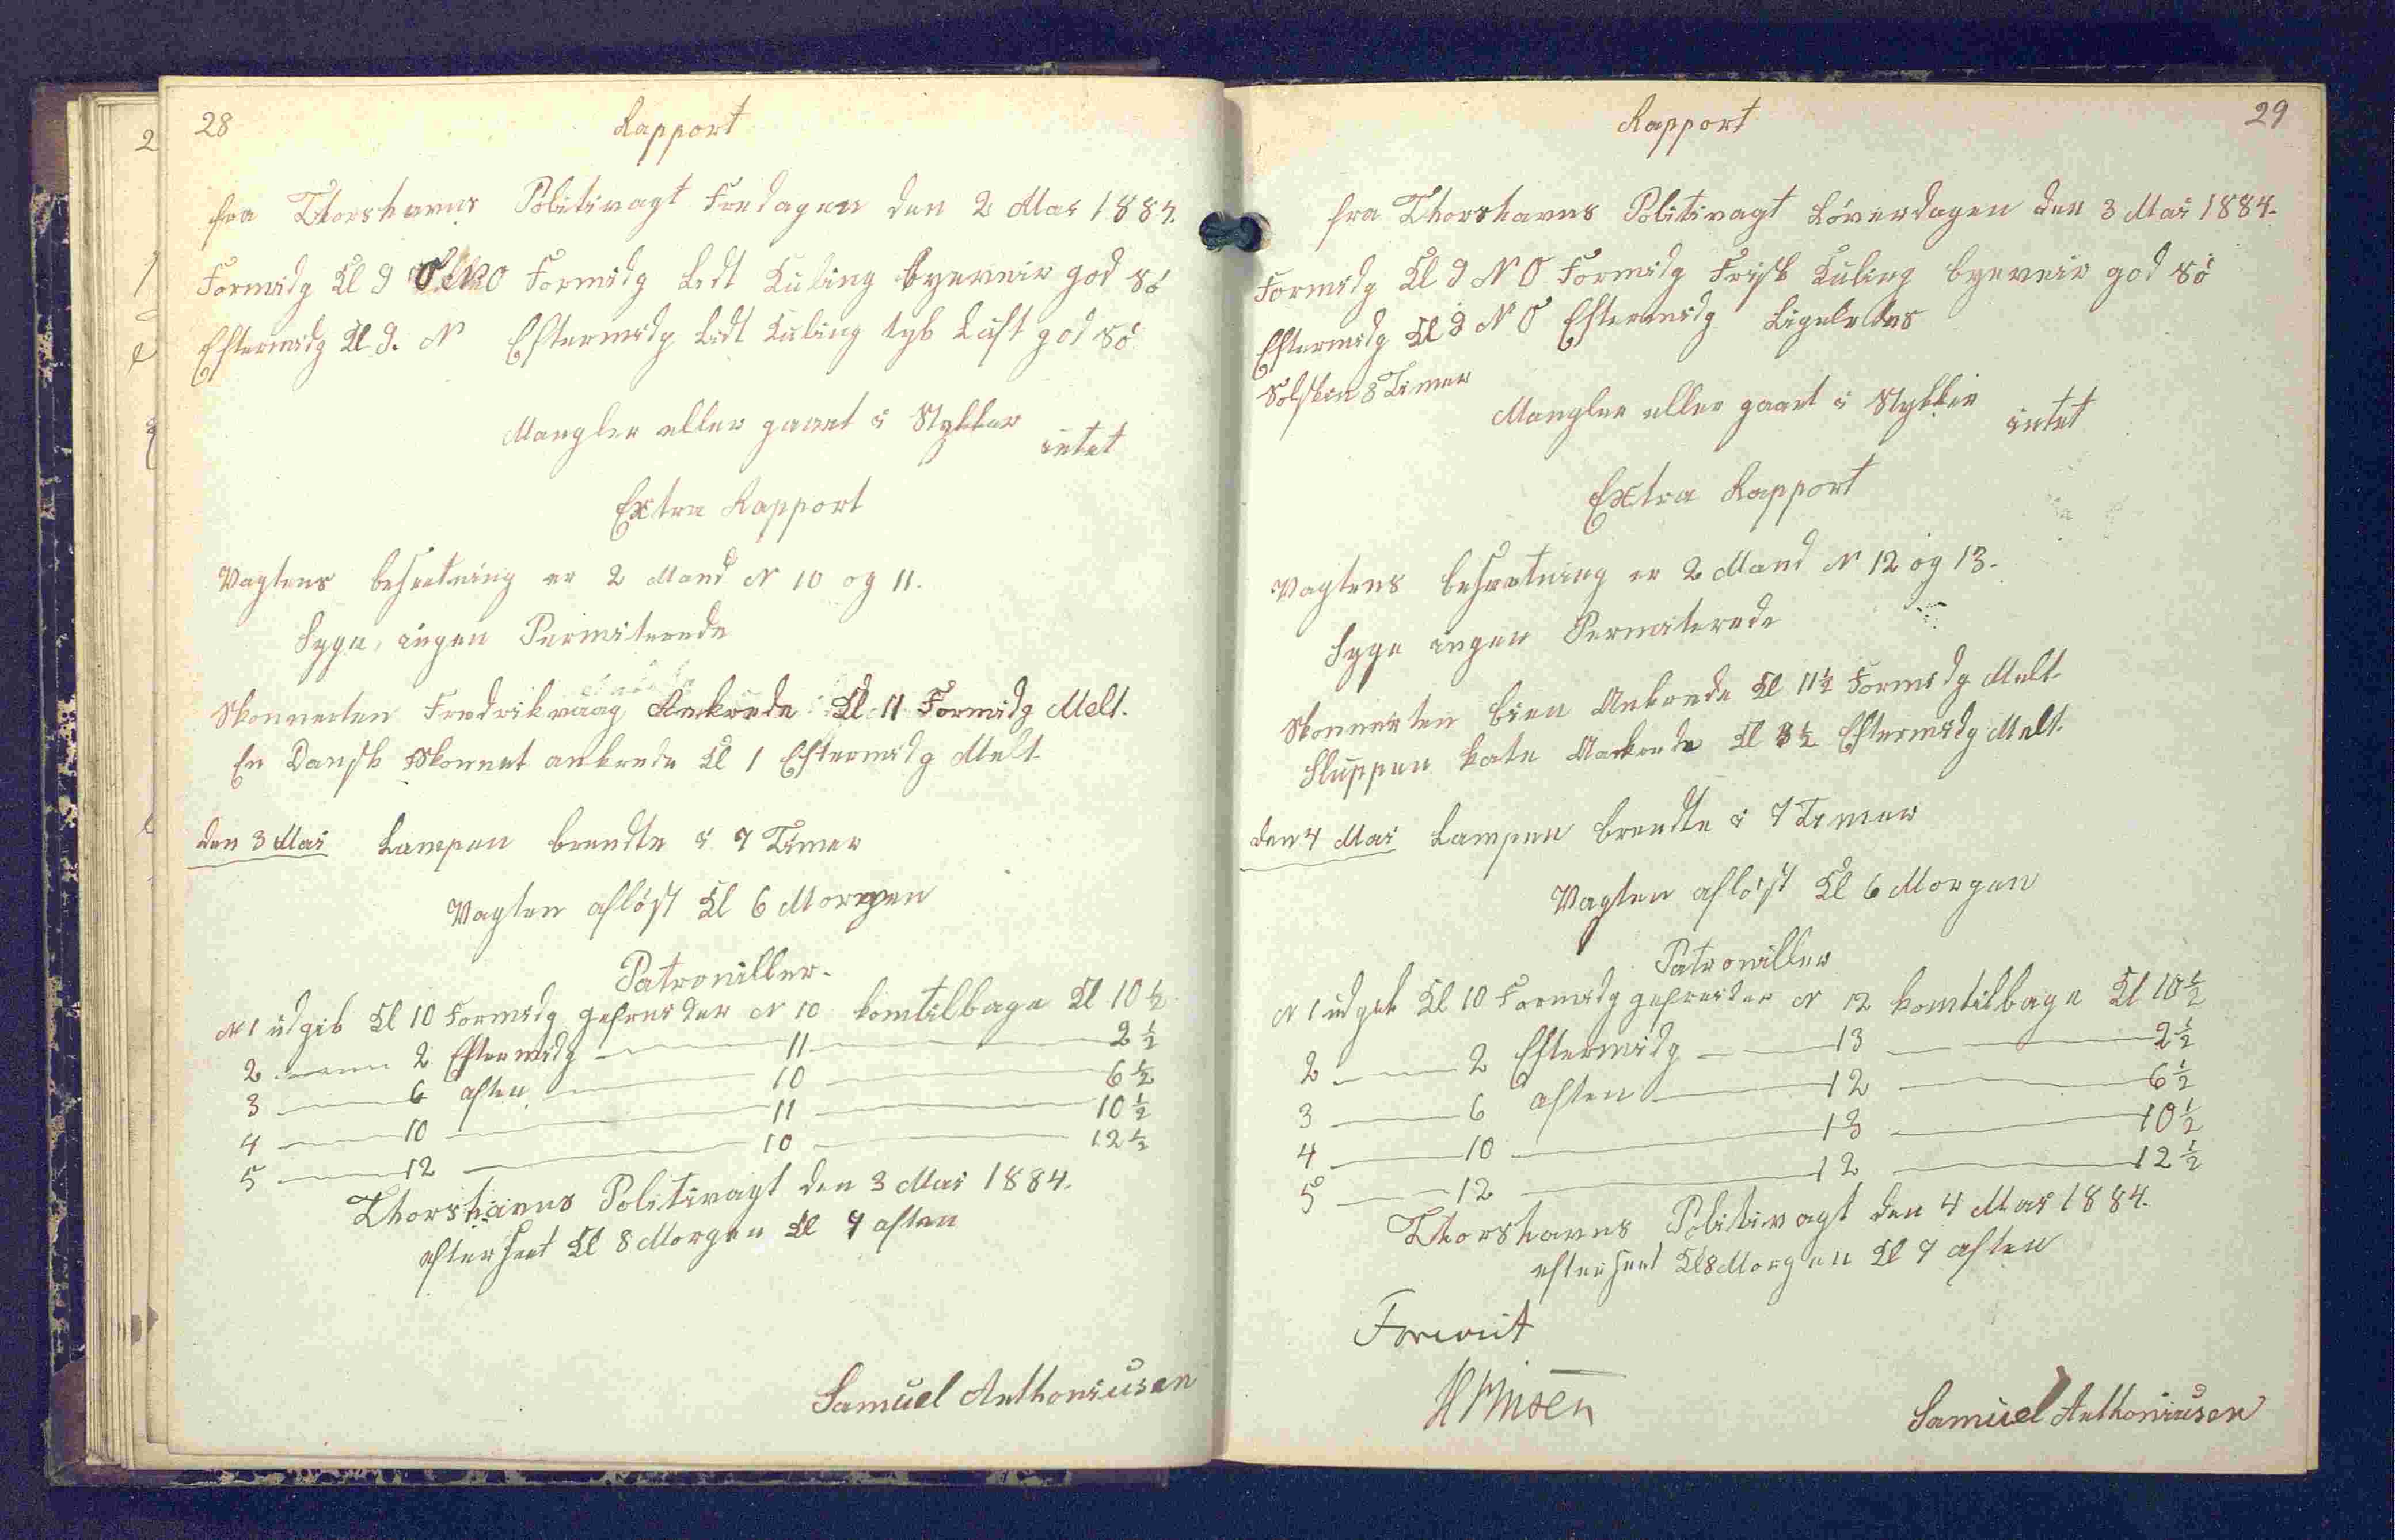 28
Rapport
fra Thorshavns Politivagt Fredagen den 2 Mai 1884.
Formidg Kl 9 NO Formidg Lidt Kuling byeveir god Sö
Eftermidg Kl 9. N Eftermidg Lidt Kuling tyk Luft god Sö
Mangler eller gaaet i Stykker
intet
Extra Rapport
Vagtens besætning er 2 Mand N 10 og 11.
Syge, ingen Permiterede
Skonnerten Fredrikvaag Ankrede Kl 11 Formidg Melt.
En Dansk Skonnet ankrede Kl 1 Eftermidg Melt.
den 3 Mai Lampen brendte i 7 Timer
Vagten aflöst Kl 6 Morgen
Patrouiller.
N 1 udgik Kl 10 Formidg gefreider N 10 komtilbage Kl 10 ½
2 2 Eftermidg 11 2 ½
3 6 aften 10 6 ½
4 10 11 10 ½
5 12 10 12 ½
Thorshavns Politivagt den 3 Mai 1884.
efterseet Kl 8 Morgen Kl 7 aften
Samuel Anthoniusen
29
Rapport
fra Thorshavns Politivagt Löverdagen den 3 Mai 1884.
Formidg Kl 9 N O Formidg Frisk Kuling byeveir god Sö
Eftermidg Kl 9 N O Eftermidg Ligeledes
Solskin 8 Timer
Mangler eller gaaet i Stykker
intet
Extra Rapport
Vagtens besætning er 2 Mand N 12 og 13.
Syge ingen Permiterede
Skonnerten bien Ankrede Kl 11½ Formidg Melt.
Sluppen Kate Ankrede Kl 3½ Eftermidg Melt.
den 4 Mai Lampen brendte i 7 Timer
Vagten aflöst Kl 6 Morgen
Patrouiller
N 1 udgik Kl 10 Formidg gefreider N 12 komtilbage Kl 10 ½
2 2 Eftermidg 13 2 ½
3 6 aften 12 6 ½
4 10 13 10 ½
5 12 12 12 ½
Thorshavns Politivagt den 4 Mai 1884.
efterseet Kl 8 Morgen Kl 7 aften
Foreviist
Samuel Anthoniusen